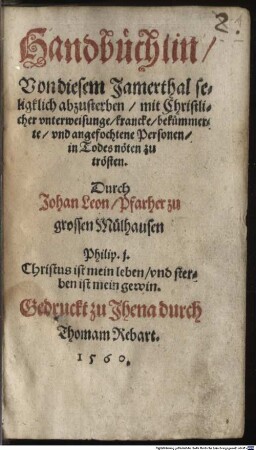 2.
Handbüchlin /
Von diesem Jamerthal se-
ligklich abzusterben / mit Christli-
cher vnterweisunge / krancke / bekümmer-
te / vnd angefochtene Personen /
in Todes nöten zu
trösten.
Durch
Johan Leon / Pfarher zu
grossen Mülhausen
Philip. j.
Christus ist mein leben / vnd ster-
ben ist mein gewin.
Gedruckt zu Jhena durch
Thomam Rebart.
1560.